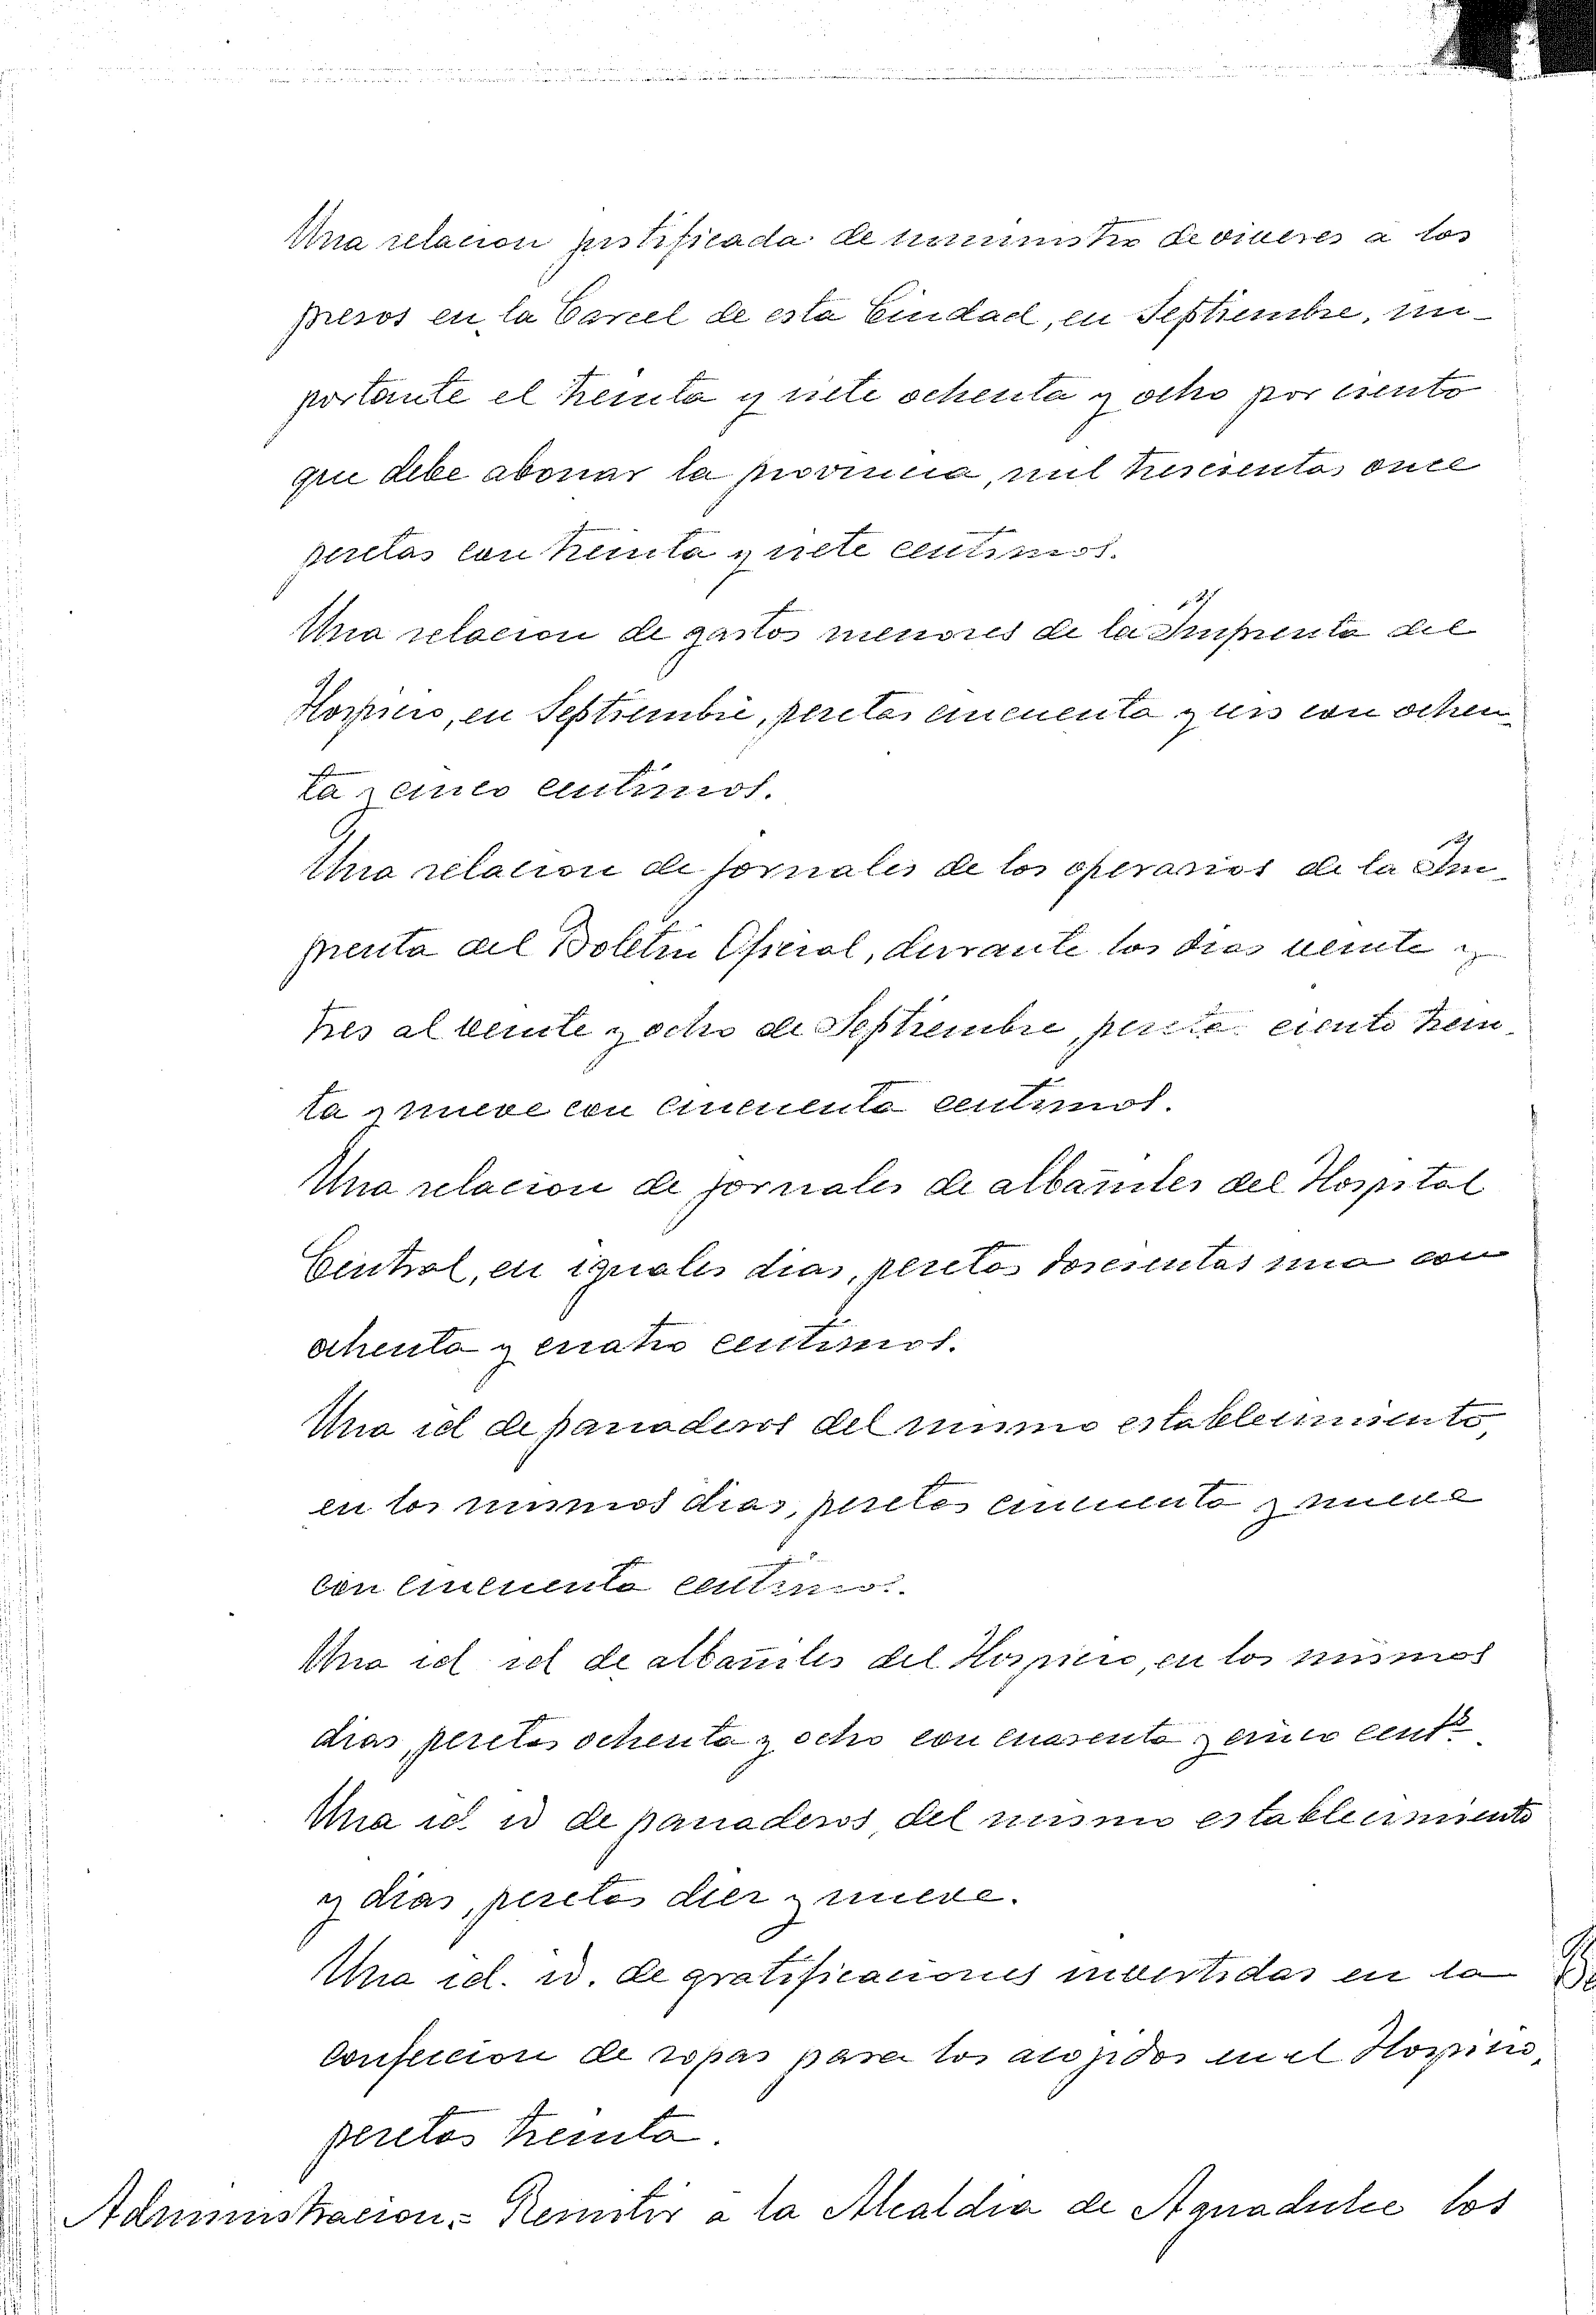 Una relacion justificada de suministro de viveres á los
presos en la Carcel de esta Ciudad, en Septiembre, im-
portante el treinta y siete ochenta y ocho por ciento
que debe abonar la provincia, mil trescientas once
pesetas con treinta y siete centimos.
Una relacion de gastos menores de la Imprenta del
Hospicio, en Septiembre, pesetas cincuenta y seis con ochen-
ta y cinco centimos.
Una relacion de jornales de los operarios de la Im-
prenta del Boletin Oficial, durante los dias veinte y
tres al veinte y ocho de Septiembre, pesetas ciento trein-
ta y nueve con cincuenta centimos.
Una relacion de jornales de albañiles del Hospital
Central, en iguales dias, pesetas doscientas una con
ochenta y cuatro centimos.
Una id de panaderos del mismo establecimiento,
en los mismos dias, pesetas cincuenta y nueve
con cincuenta centimos.
Una id id de albañiles del Hospicio, en los mismos
dias, pesetas ochenta y ocho con cuarenta y cinco centˢ.
Una id id de panaderos, del mismo establecimiento
y dias, pesetas diez y nueve.
Una id. id. de gratificaciones invertidas en la
confeccion de ropas para los acojidos en el Hospicio,
pesetas treinta.
Administracion.= Remitir á la Alcaldia de Aguadulce los